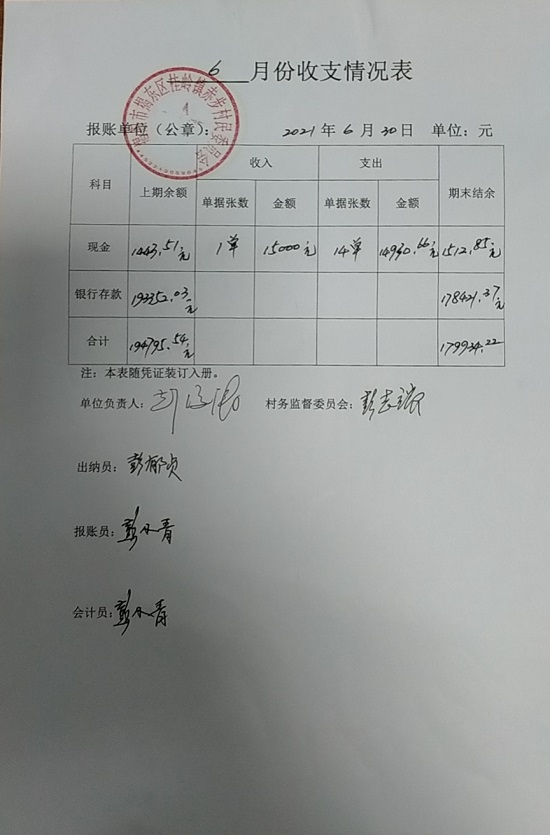 6 月份收支情况表
揭阳市揭东区桂岭镇赤步村民委员会
报账单位（公章）： 2021 年 6 月 30 日 单位：元
科目 上期余额 收入 支出 期末结余
单据张数 金额 单据张数 金额
现金 1443.51元 1单 15000元 14单 14930.66元 1512.85元
银行存款 193352.03元 178421.37元
合计 194795.54元 179934.22
注：本表随凭证装订入册。
单位负责人： 村务监督委员会：彭志瑞
出纳员：彭郁贞
报账员：彭木青
会计员：彭木青